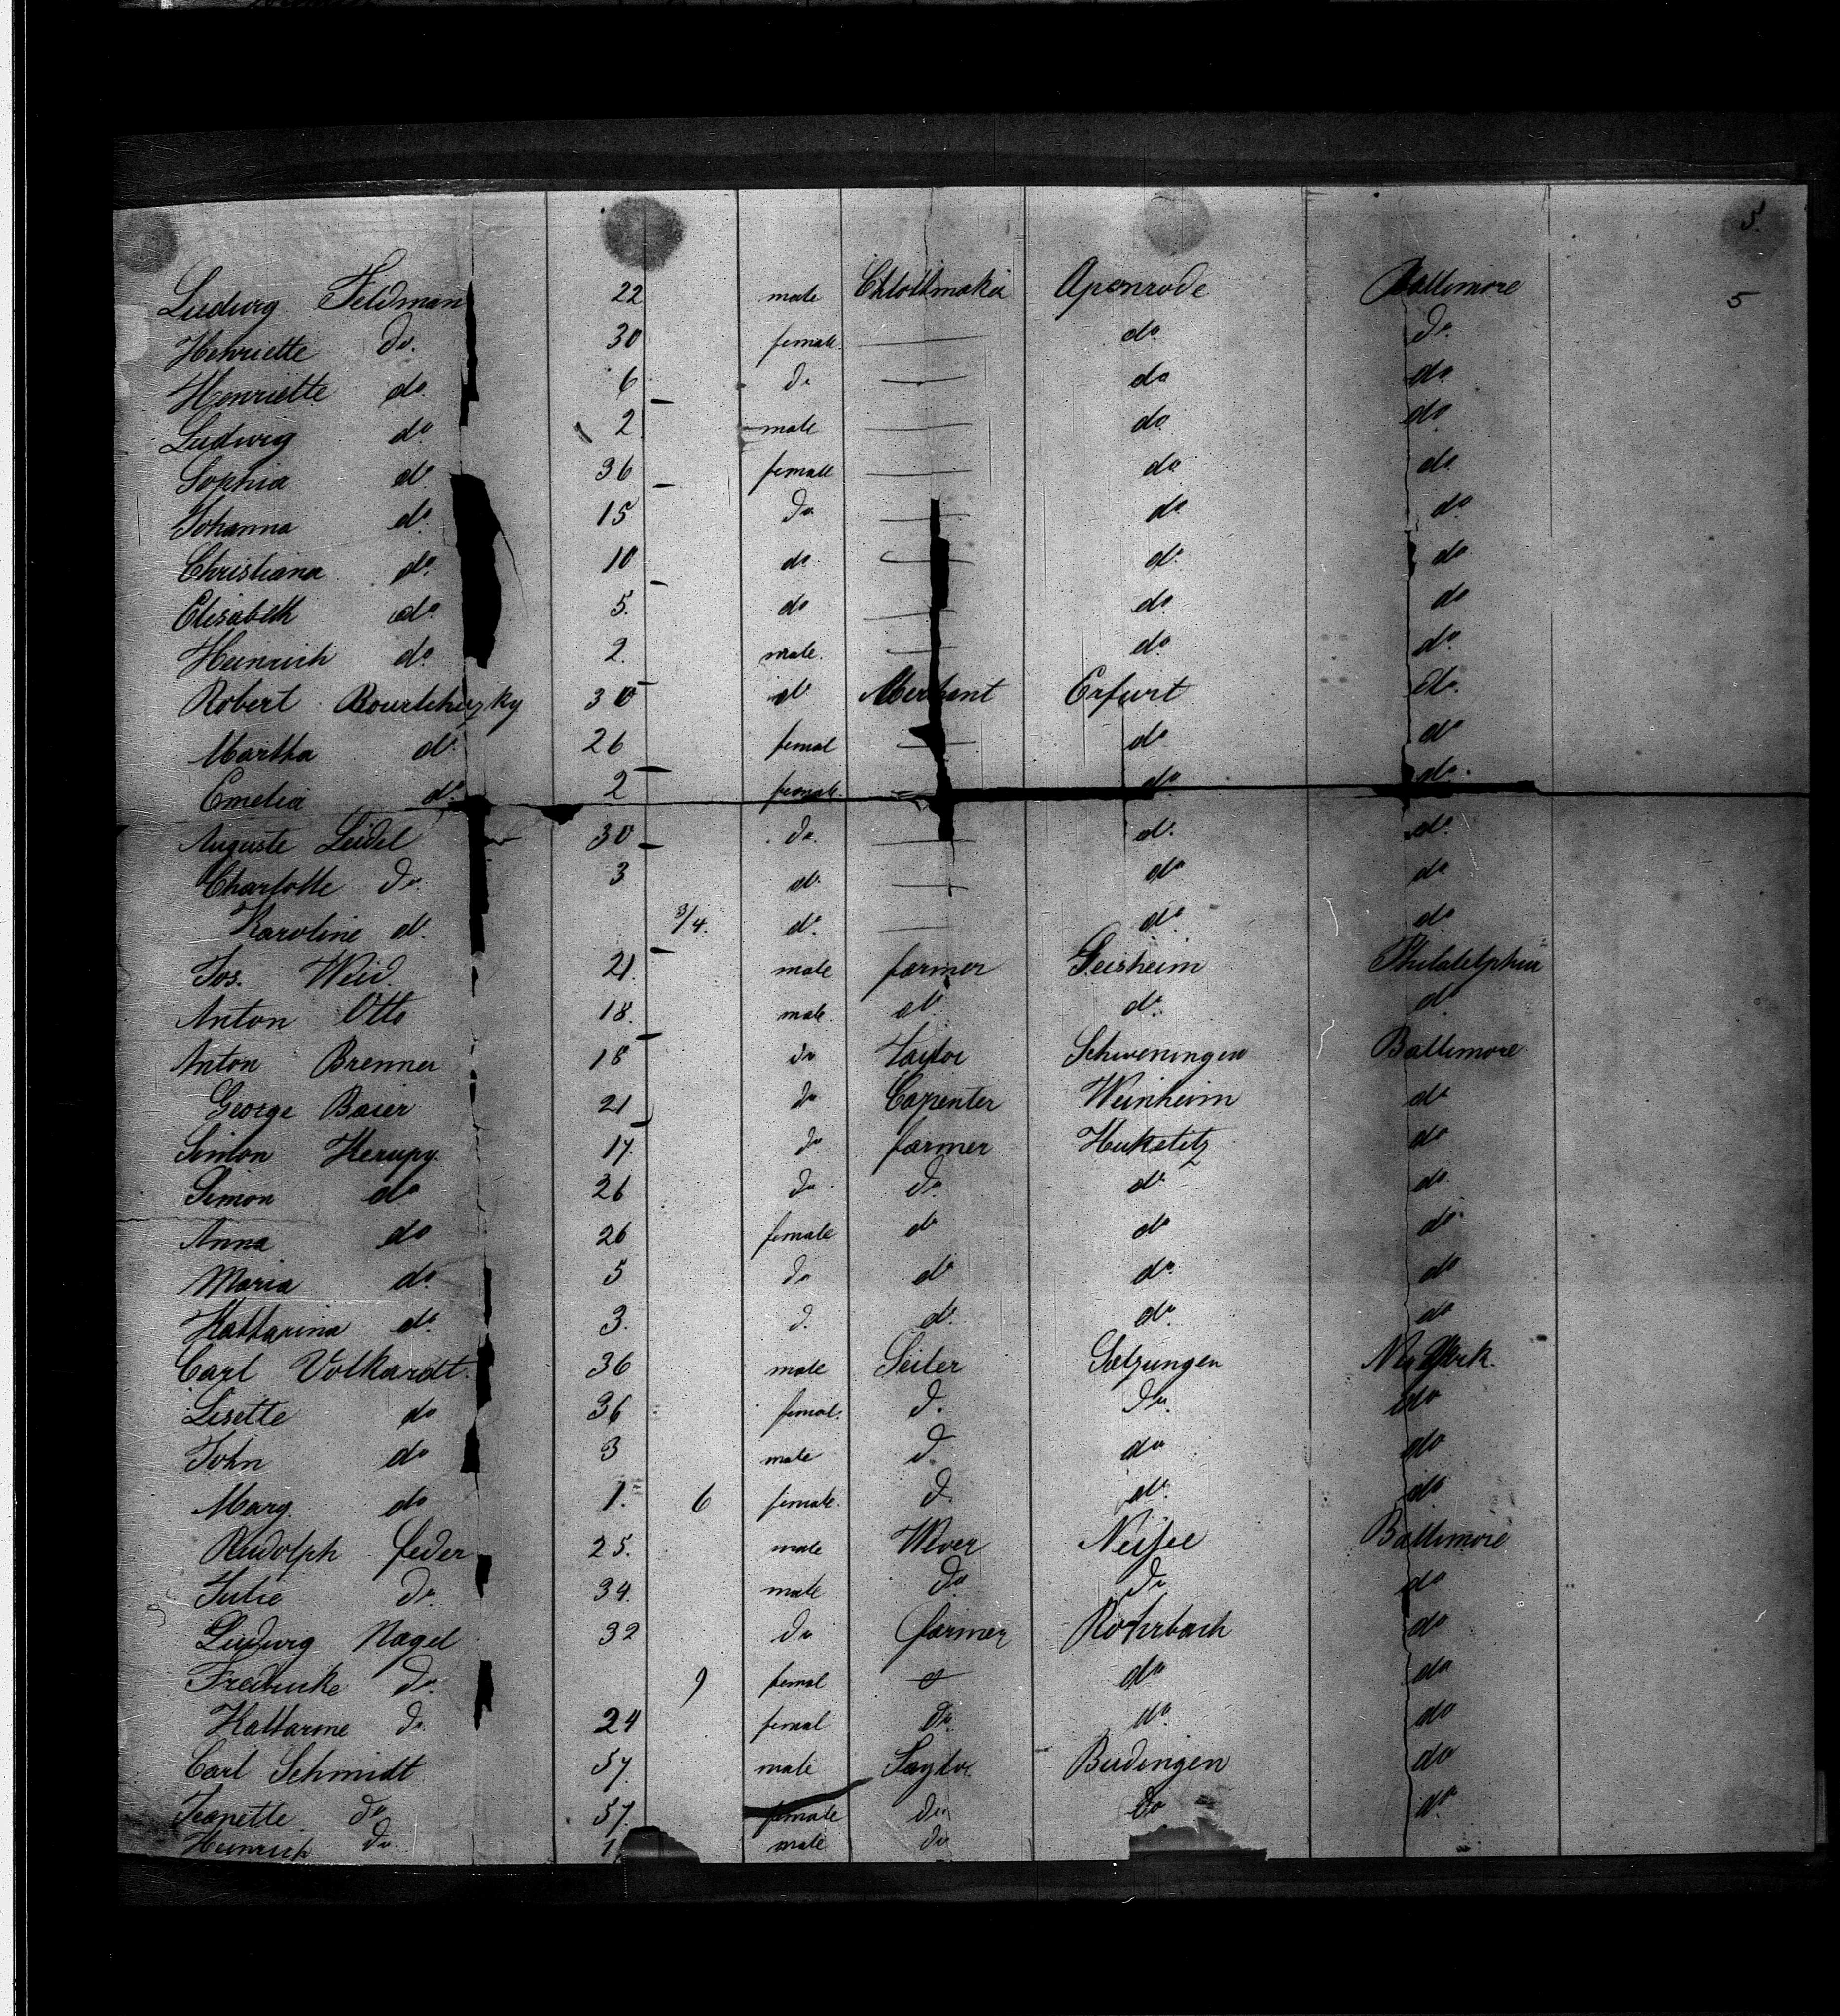 5.
Ludwig Feldman 22 male Chlothmaker Apenrode Baltimore 5
Henriette do. 30 female — do. do.
Henriette do. 6 do — do do
Ludwig do. 2 male — do do
Sophia do 36 female — do do
Johanna do. 15 do — do. do.
Christiana do. 10 do — do. do
Elisabeth do. 5. do — do. do
Heinrich do. 2. male. — do. do.
Robert 30 do Merchant Erfurt do.
Martha do. 26 femal — do do
Emelia do. 2 female. — do. do.
Auguste Leidel 30 do. — do. do.
Charlotte do. 3 do. — do do
Karoline do. 3/4. do. — do. do
Jos. Weid. 21. male farmer Geisheim Philatelphia
Anton Otto 18. male. do. do. do
Anton Brenner 18 do Taylor Schweningen Baltimore
George Baier 21 do Carpenter Weinheim do
Simon 17. do. farmer do
Simon do 26 do do. do do.
Anna do 26 female do do do.
Maria do. 5 do do do. do
Kattarina do. 3. d. do. do. do
Carl Volkardt. 36 male Seiler Salzungen New York.
Lisette do 36 femal. d. do. do
John do 3 male d. do do
Marg. do 1. 6 female. d. do. do
Rudolph feder 25. male Wever Neisse Baltimore
Julie do. 34. male do do do
Ludwig Nagel 32 do farmer Rohrbach do
Fredricke do. 9 femal do do
Kattarine do. 24 femal do. do. do
Carl Schmidt 57. male Taylor Budingen do
Jeanette do 57. female do. do do.
Heinrich do. 1 male do